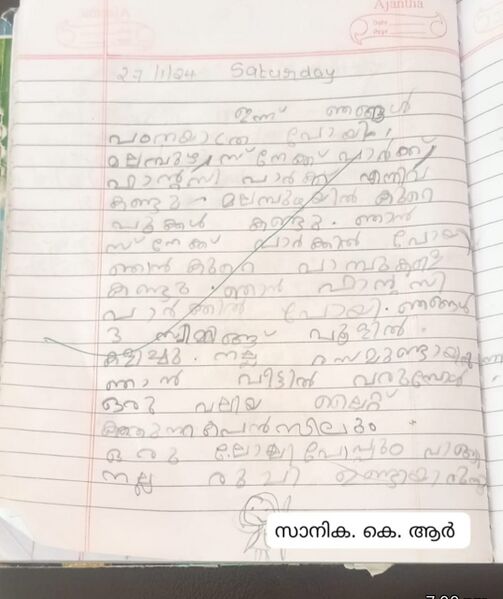 Ajantha
27/1/24 Saturday
ഇന്ന് ഞങ്ങൾ
പഠനയാത്ര പോയി.
മലമ്പുഴ, സ്നേക്ക് പാർക്ക്,
ഫാന്റസി പാർക്ക് എന്നിവ
കണ്ടു. മലമ്പുഴയിൽ കുറെ
പൂക്കൾ കണ്ടു. ഞാൻ
സ്നേക്ക് പാർക്കിൽ പോയി
ഞാൻ കുറെ പാമ്പുകളെ
കണ്ടു. ഞാൻ ഫാന്റസി
പാർക്കിൽ പോയി. ഞങ്ങൾ
3 സ്വിമ്മിങ്ങ് പൂളിൽ.
കളിച്ചു. നല്ല രസമുണ്ടായിരുന്നു
ഞാൻ വീട്ടിൽ വരുമ്പോൾ
ഒരു വലിയ ലൈറ്റ്
കത്തുന്ന പെൻസിലും
ഒരു ലോലിപോപ്പും വാങ്ങി
നല്ല രുചി ഉണ്ടായിരുന്നു
സാനിക. കെ. ആർ